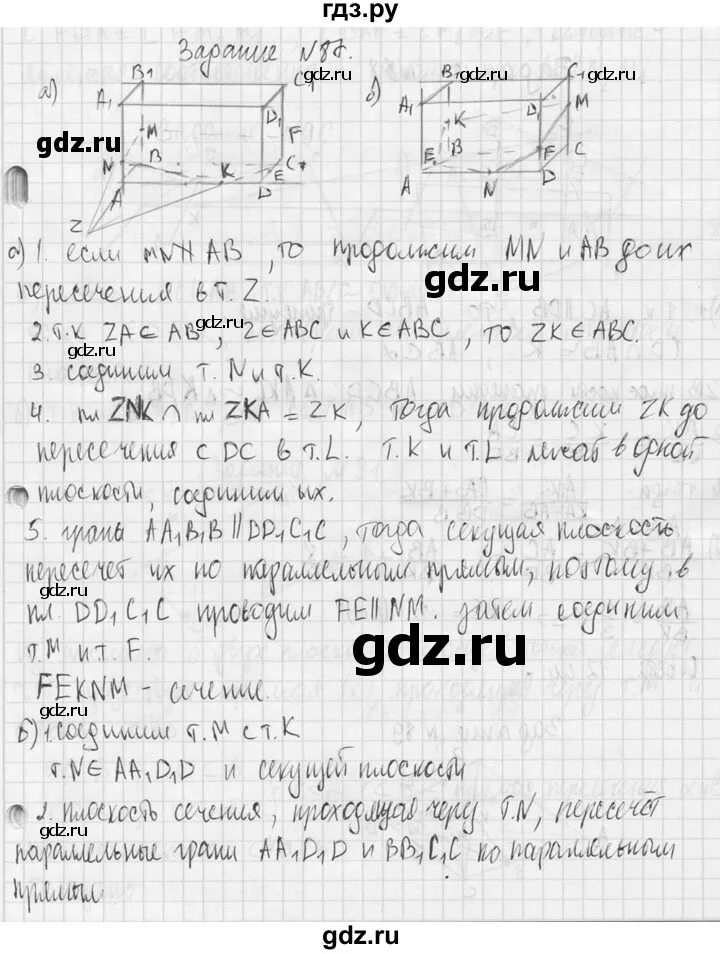 гдз.ру
Задание №87.
а) B1 C1 A1 D1 M F N B C A K D E Z
б) B1 C1 A1 D1 M K E B F C A N D
gdz.ru gdz.ru
gdz.ru gdz.ru
а) 1. если MN∦AB, то продолжим MN и AB до их
пересечения в т. Z.
gdz.ru
2. т.к ZA⊂AB, Z∈ABC и K∈ABC, то ZK∈ABC.
gdz.ru gdz.ru
3. соединим т. N и т. K.
4. пл ZNK ∩ пл ZKA = ZK, тогда продолжим ZK до
пересечения с DC в т. L. т. K и т. L лежат в одной
плоскости, соединим их.
5. грани AA1B1B∥DD1C1C, тогда секущая плоскость
пересечет их по параллельным прямым, поэтому в
пл. DD1C1C проводим FE∥NM. затем соединим
т. M и т. F.
gdz.ru
FEKNM – сечение.
gdz.ru
б) 1. соединим т. M с т. K
т. N∈AA1D1D и секущей плоскости
2. плоскость сечения, проходящая через т. N, пересечёт
параллельные грани AA1D1D и BB1C1C по параллельным
прямым
gdz.ru